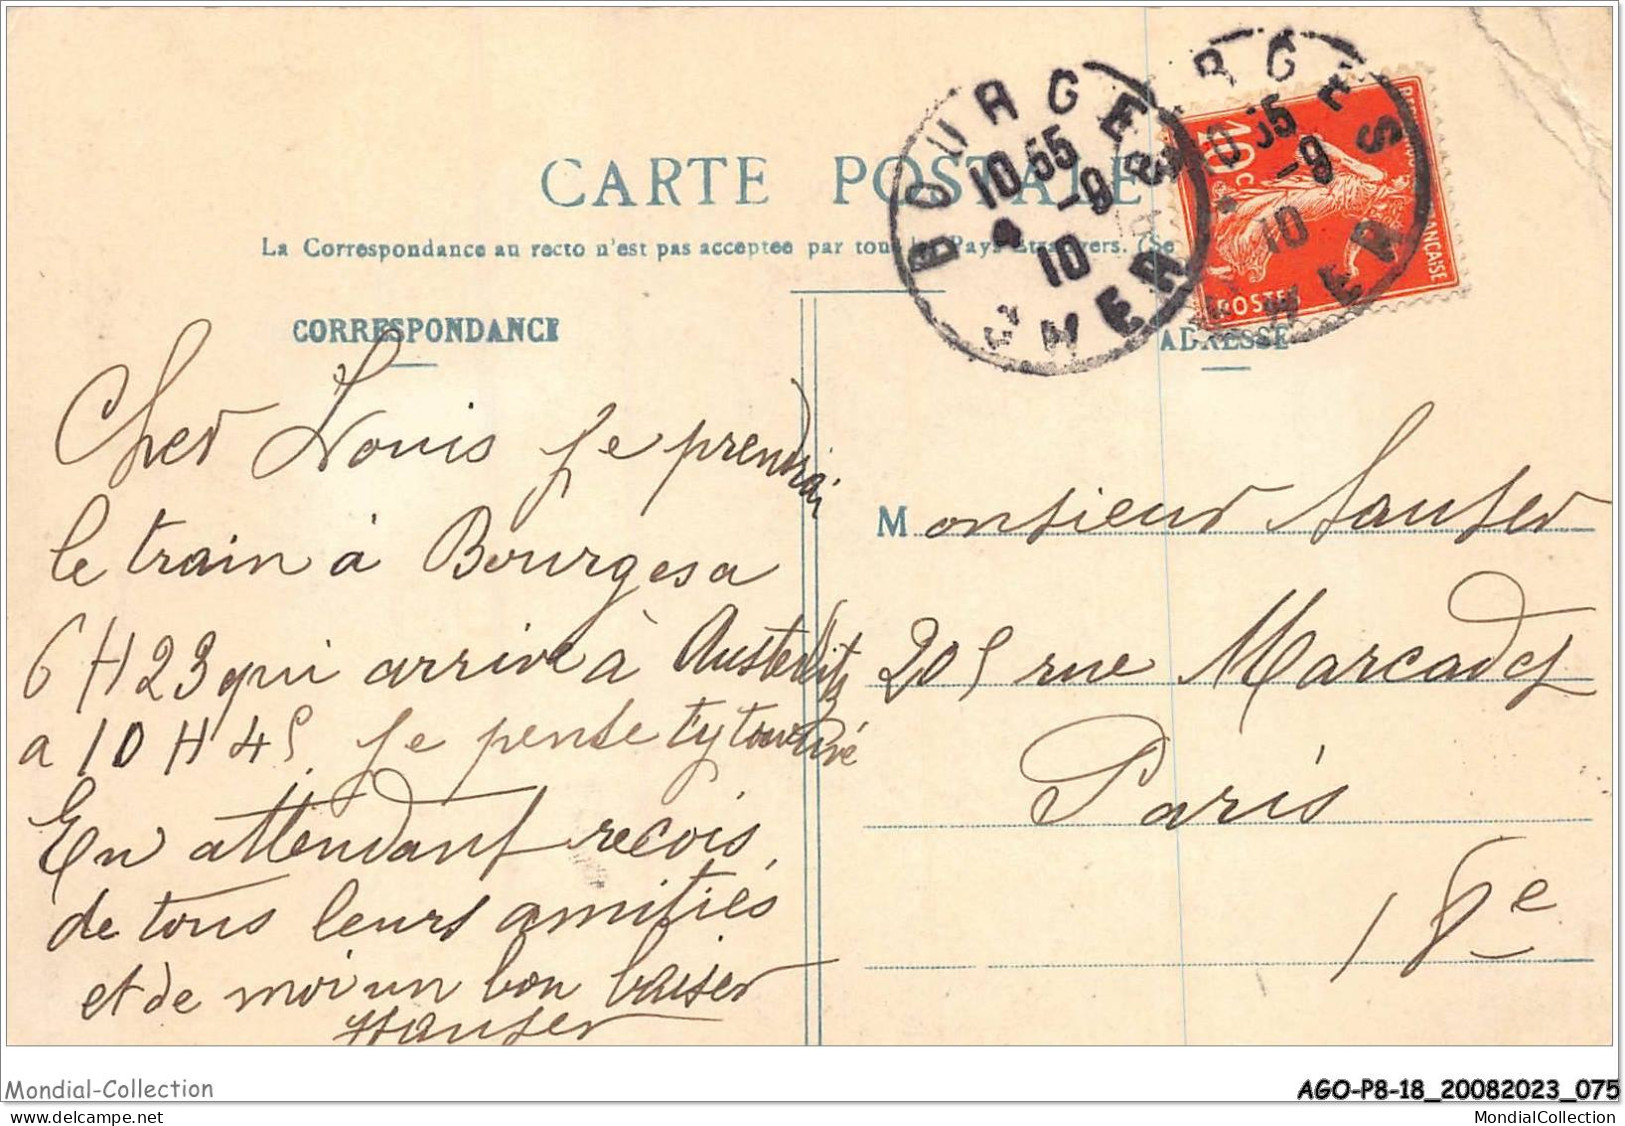 CARTE POSTALE
La Correspondance au recto n'est pas acceptée par tous les Pays Etrangers. (Se
BOURGES
10 55
-9
10
CHER
BOURGES
10 55
-9
10
CHER
10 c
POSTES
CORRESPONDANCE
ADRESSE
Cher Louis je prendrai
le train à Bourges a
6 H 23 qui arrive à Austerlitz
a 10 H 45 je pense t'y trouvé
En attendant recois
de tous leurs amitiés
et de moi un bon baiser
Hauser
Monsieur Hauser
205 rue Marcadet
Paris
18e
Mondial-Collection
AGO-P8-18_20082023_075
www.delcampe.net
MondialCollection